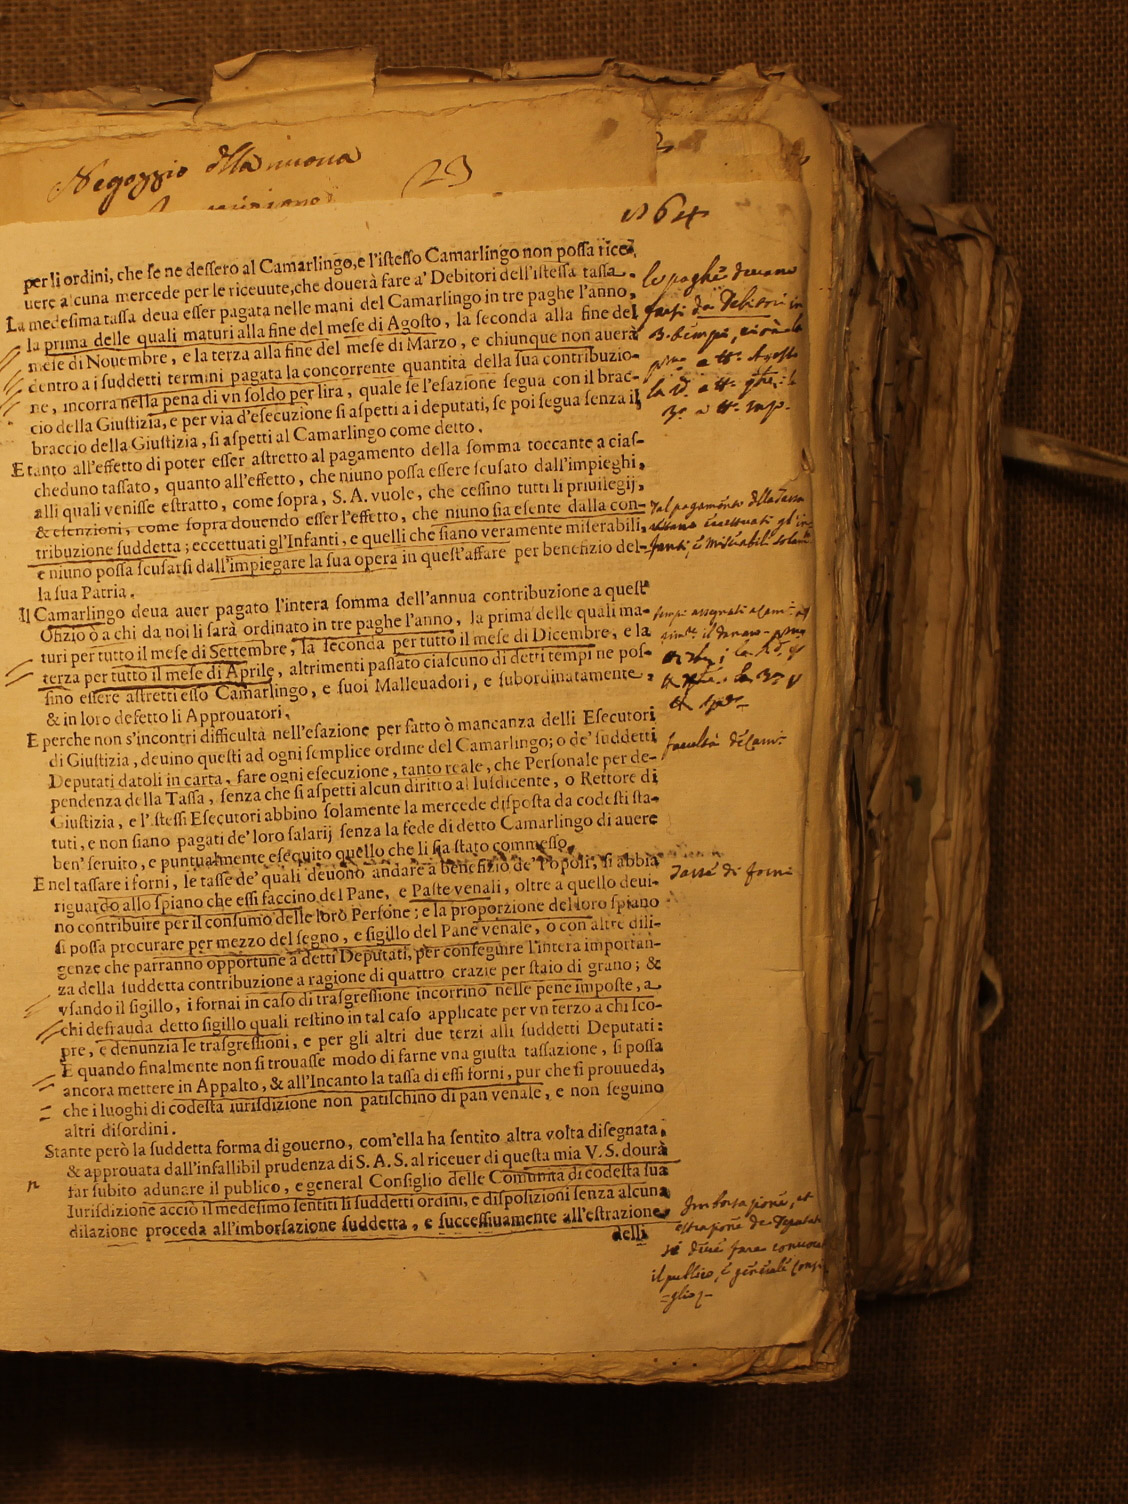 Negozzio della nuova
23
1564
per li ordini, che ſe ne deſſero al Camarlingo, e l'iſteſſo Camarlingo non poſſa rice-
uere alcuna mercede per le riceuute, che douerà fare a' Debitori dell'iſteſſa taſſa.
La medeſima taſſa deua eſſer pagata nelle mani del Camarlingo in tre paghe l'anno,
la prima delle quali maturi alla fine del meſe di Agoſto, la ſeconda alla fine del
meſe di Nouembre, e la terza alla fine del meſe di Marzo, e chiunque non auerà
dentro a i ſuddetti termini pagata la concorrente quantità della ſua contribuzio-
ne, incorra nella pena di vn ſoldo per lira, quale ſe l'eſazione ſegua con il brac-
cio della Giuſtizia, e per via d'eſecuzione ſi aſpetti a i deputati, ſe poi ſegua ſenza il
braccio della Giuſtizia, ſi aſpetti al Camarlingo come detto.
le paghe deuano
farſi da Debitori in
E tanto all'effetto di poter eſſer aſtretto al pagamento della ſomma toccante a ciaſ-
cheduno taſſato, quanto all'effetto, che niuno poſſa eſſere ſcuſato dall'impieghi,
alli quali veniſſe eſtratto, come ſopra, S. A. vuole, che ceſſino tutti li priuilegij,
& eſenzioni, come ſopra douendo eſſer l'effetto, che niuno ſia eſente dalla con-
tribuzione ſuddetta; eccettuati gl'Infanti, e quelli che ſiano veramente miſerabili,
e niuno poſſa ſcuſarſi dall'impiegare la ſua opera in queſt'affare per benefizio del-
la ſua Patria.
Dal pagamento della Taſſa
Il Camarlingo deua auer pagato l'intera ſomma dell'annua contribuzione a queſt'
Ofizio ò a chi da noi li ſarà ordinato in tre paghe l'anno, la prima delle quali ma-
turi per tutto il meſe di Settembre, la ſeconda per tutto il meſe di Dicembre, e la
terza per tutto il meſe di Aprile, altrimenti paſſato ciaſcuno di detti tempi ne poſ-
ſino eſſere aſtretti eſſo Camarlingo, e ſuoi Malleuadori, e ſubordinatamente,
& in loro defetto li Approuatori.
E perche non s'incontri difficultà nell'eſazione per fatto ò mancanza delli Eſecutori
di Giuſtizia, deuino queſti ad ogni ſemplice ordine del Camarlingo; o de' ſuddetti
Deputati datoli in carta, fare ogni eſecuzione, tanto reale, che Perſonale per de-
pendenza della Taſſa, ſenza che ſi aſpetti alcun diritto al Iuſdicente, o Rettore di
Giuſtizia, e l'iſteſſi Eſecutori abbino ſolamente la mercede diſpoſta da codeſti ſta-
tuti, e non ſiano pagati de' loro ſalarij ſenza la fede di detto Camarlingo di auere
ben' ſeruito, e puntualmente eſequito quello che li ſia ſtato commeſſo.
facultà
E nel taſſare i forni, le taſſe de' quali deuono andare a benefizio de' Popoli, ſi abbia
riguardo allo ſpiano che eſſi faccino del Pane, e Paſte venali, oltre a quello deui-
no contribuire per il conſumo delle loro Perſone; e la proporzione del loro ſpiano
ſi poſſa procurare per mezzo del ſegno, e ſigillo del Pane venale, o con altre dili-
genze che parranno opportune a detti Deputati, per conſeguire l'intera importan-
za della ſuddetta contribuzione a ragione di quattro crazie per ſtaio di grano; &
vſando il ſigillo, i fornai in caſo di traſgreſſione incorrino nelle pene impoſte, a
chi defrauda detto ſigillo quali reſtino in tal caſo applicate per vn terzo a chi ſco-
pre, e denunzia le traſgreſſioni, e per gli altri due terzi alli ſuddetti Deputati:
E quando finalmente non ſi trouaſſe modo di farne vna giuſta taſſazione, ſi poſſa
ancora mettere in Appalto, & all'Incanto la taſſa di eſſi forni, pur che ſi prouueda,
che i luoghi di codeſta iuriſdizione non patiſchino di pan venale, e non ſeguino
altri diſordini.
Taſſa di forni
Stante però la ſuddetta forma di gouerno, com'ella ha ſentito altra volta diſegnata,
& approuata dall'infallibil prudenza di S. A. S. al riceuer di queſta mia V. S. dourà
far ſubito adunare il publico, e general Conſiglio delle Comunità di codeſta ſua
Iuriſdizione acciò il medeſimo ſentiti li ſuddetti ordini, e diſpoſizioni ſenza alcuna
dilazione proceda all'imborſazione ſuddetta, e ſucceſſiuamente all'eſtrazione
delli
Imborſazione, et
eſtrazione de Deputati
il publico, e generale Conſi-
=glio